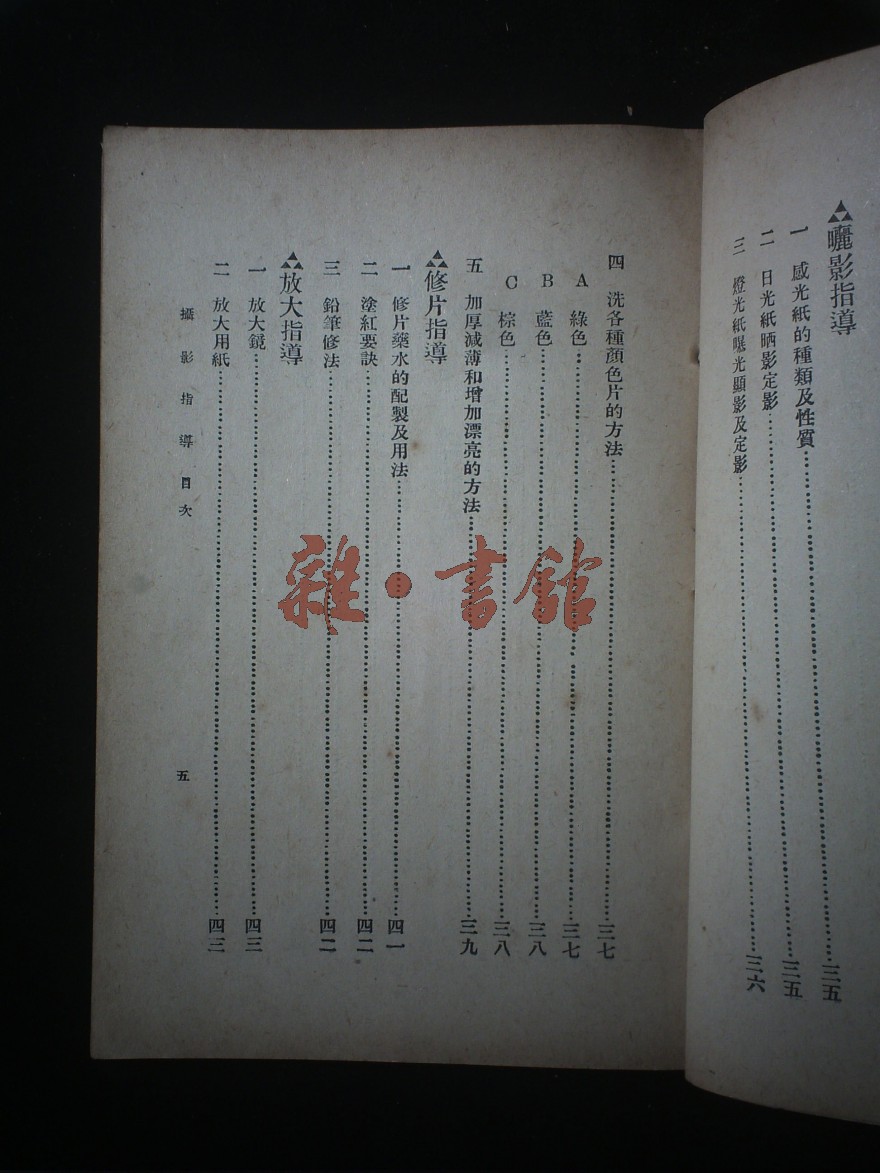 曬影指導
一 感光紙的種類及性質……三五
二 日光紙晒影定影……三五
三 燈光紙曝光顯影及定影……三六
四 洗各種顏色片的方法……三七
A 綠色……三七
B 藍色……三八
C 棕色……三八
五 加厚減薄和增加漂亮的方法……三九
修片指導
一 修片藥水的配製及用法……四一
二 塗紅要訣……四二
三 鉛筆修法……四二
放大指導
一 放大鏡……四三
二 放大用紙……四三
攝影指導 目次
五
雜·書館